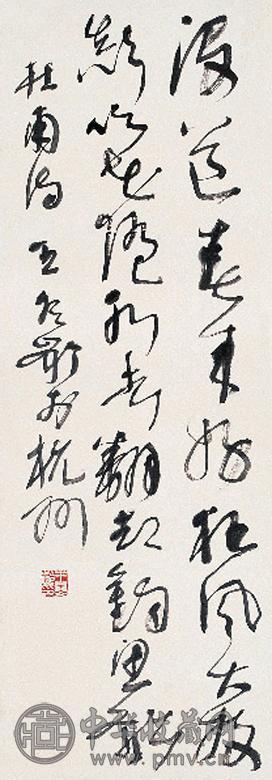 漫道春来好狂风大放
颠吹花随水去翻却钓鱼船
杜甫诗 王冬龄于杭州
中华收藏网
www.pmv.cn